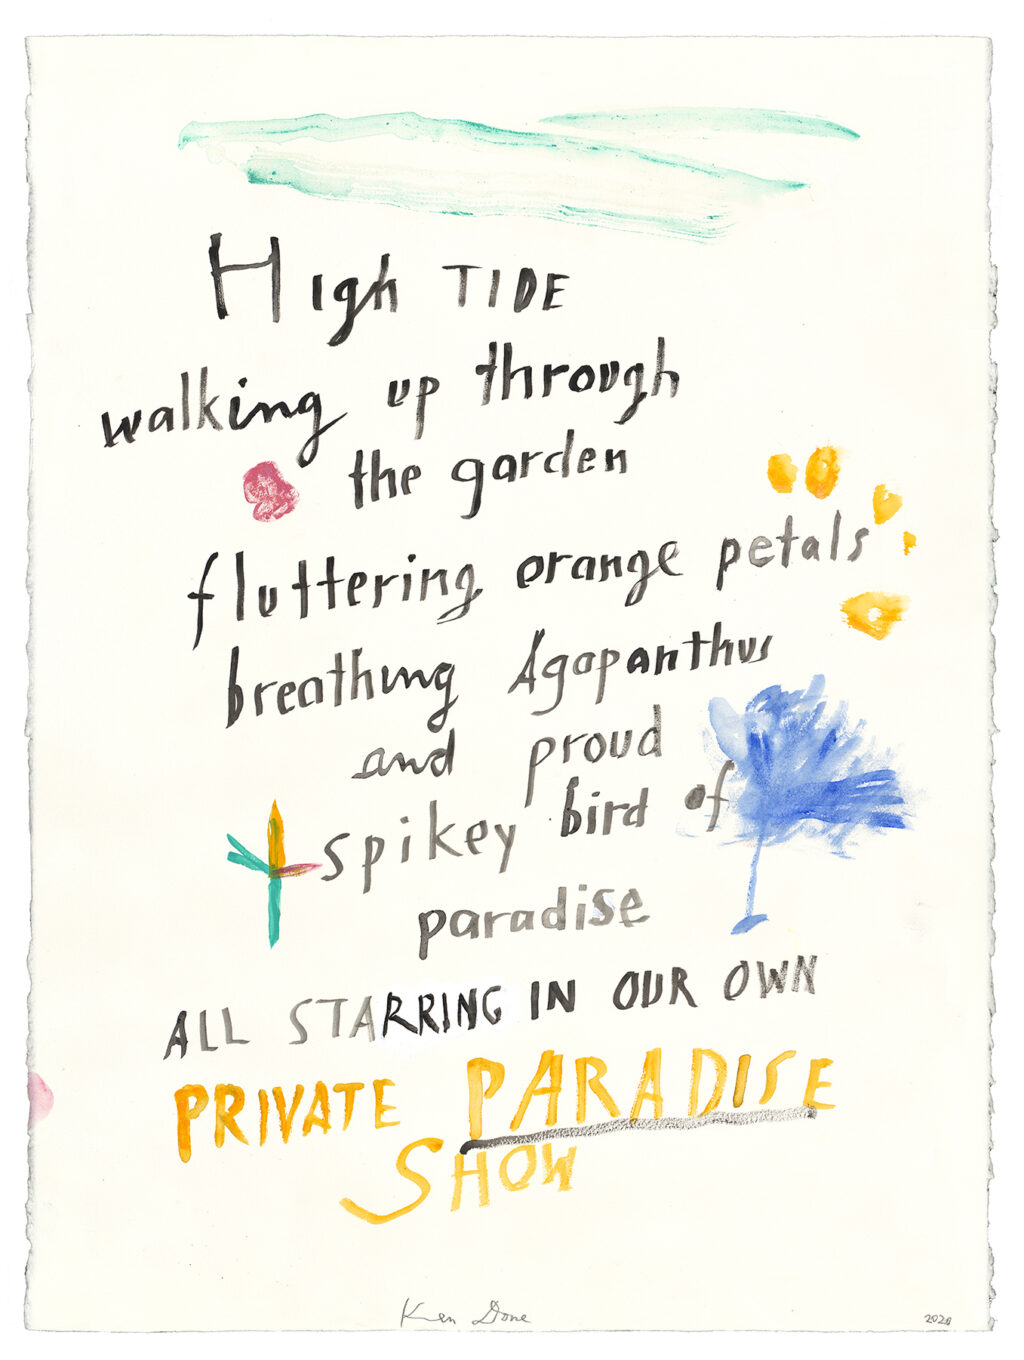 High TIDE
walking up through
the garden
fluttering orange petals
breathing Agapanthus
and proud
spikey bird of
paradise
ALL STARRING IN OUR OWN
PRIVATE PARADISE
SHOW
Ken Done
2020